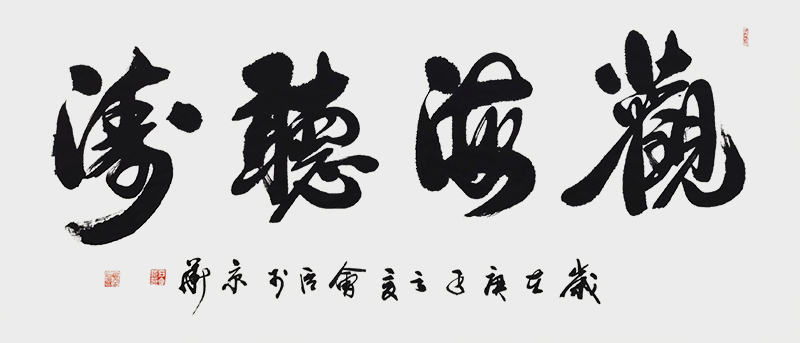 觀海聽濤
歲在庚子之夏會信書於京華